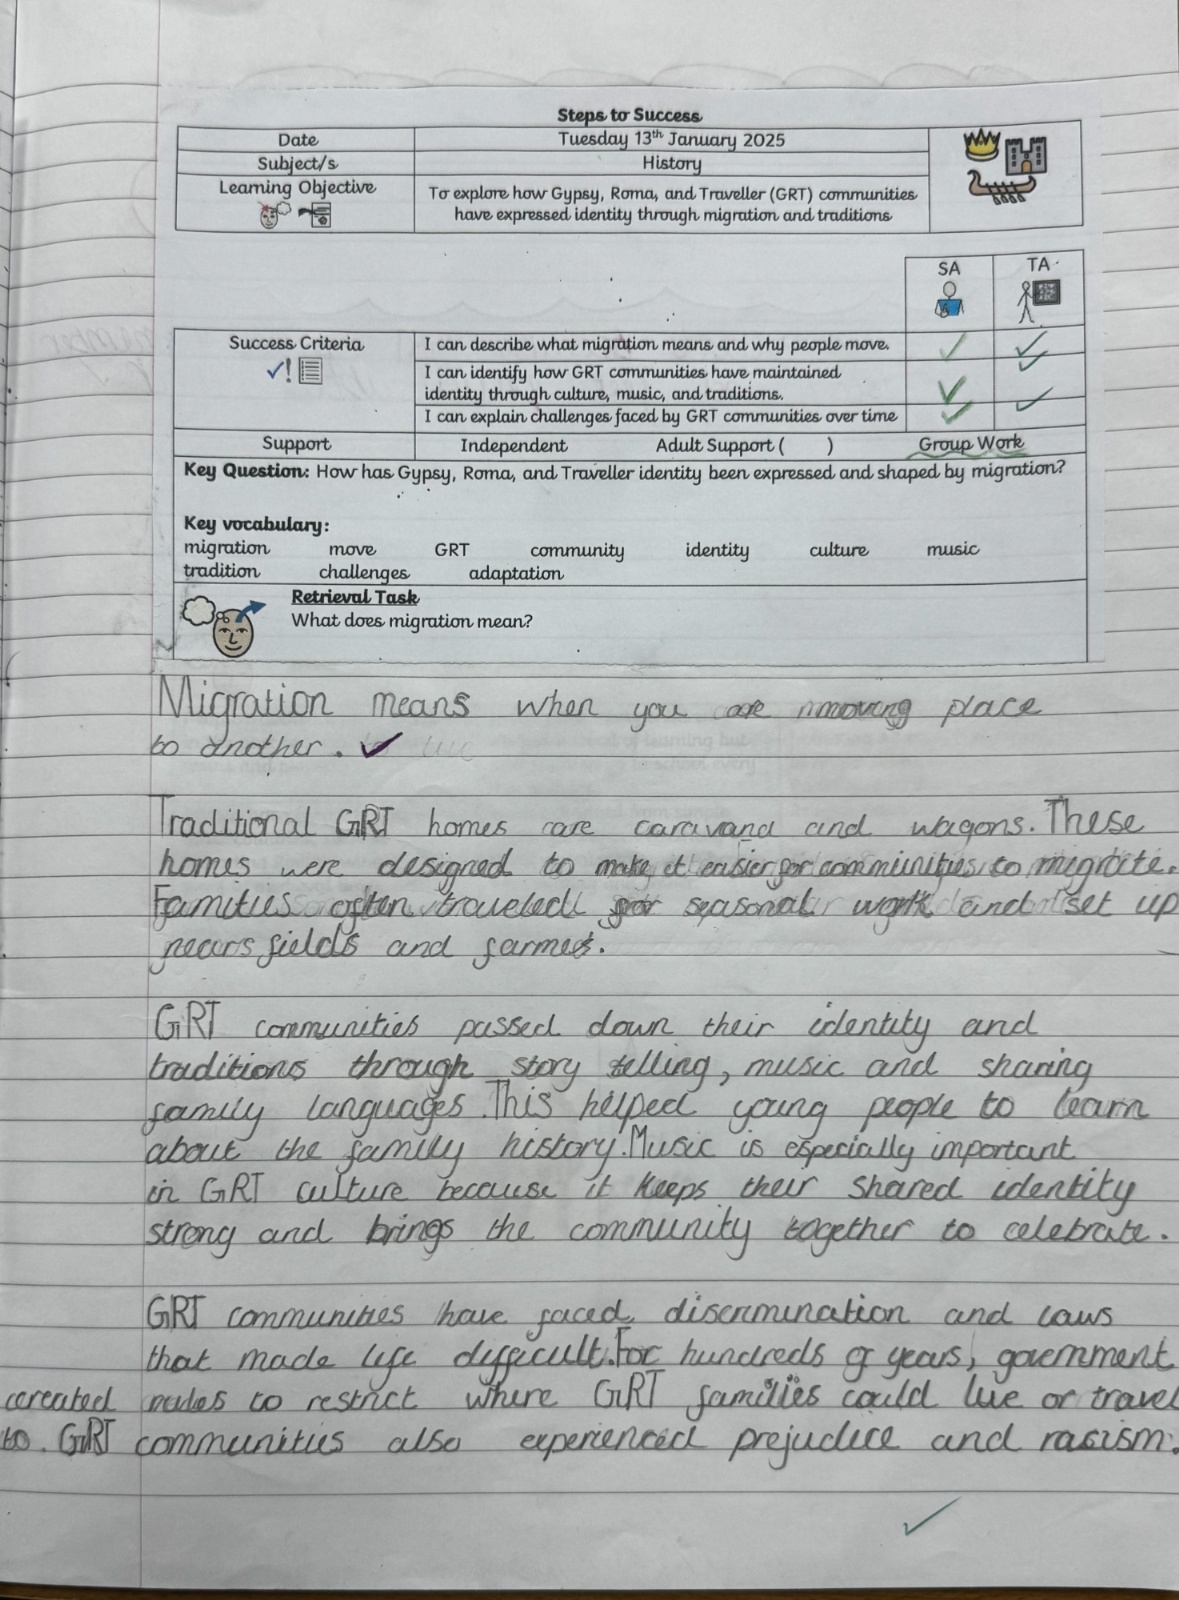 Steps to Success
Date Tuesday 13th January 2025
Subject/s History
Learning Objective To explore how Gypsy, Roma, and Traveller (GRT) communities
have expressed identity through migration and traditions
SA TA
Success Criteria I can describe what migration means and why people move.
I can identify how GRT communities have maintained
identity through culture, music, and traditions.
I can explain challenges faced by GRT communities over time
Support Independent Adult Support ( ) Group Work
Key Question: How has Gypsy, Roma, and Traveller identity been expressed and shaped by migration?
Key vocabulary:
migration move GRT community identity culture music
tradition challenges adaptation
Retrieval Task
What does migration mean?
Migration means when you are moving place
to another.
Traditional GRT homes are caravand and wagons. These
homes were designed to make it easier for communities to migrate.
Families often traveled for seasonal work and set up
nears fields and farmes.
GRT communities passed down their identity and
traditions through story telling, music and sharing
family languages. This helped young people to learn
about the family history. Music is especially important
in GRT culture because it keeps their shared identity
strong and brings the community together to celebrate.
GRT communities have faced discrimination and laws
that made life difficult. For hundreds of years, goernment
cereated rules to restrict where GRT families could live or travel
to. GRT communities also experienced prejudice and racism.